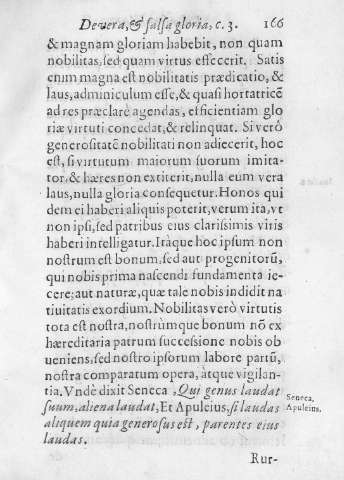 De vera, & falsa gloria, c. 3. 166
& magnam gloriam habebit, non quam
nobilitas, sed quam virtus effecerit. Satis
enim magna est nobilitatis prædicatio, &
laus, adminiculum esse, & quasi hortatricē
ad res præclarè agendas, efficientiam glo
riæ virtuti concedat, & relinquat. Si verò
generositatē nobilitati non adiecerit, hoc
est, si virtutum maiorum suorum imita-
tor, & hæres non extiterit, nulla eum vera
laus, nulla gloria consequetur. Honos qui
dem ei haberi aliquis poterit, verum ita, vt
non ipsi, sed patribus eius clarissimis viris
haberi intelligatur. Itàque hoc ipsum non
nostrum est bonum, sed aut progenitorū,
qui nobis prima nascendi fundamenta ie-
cere; aut naturæ, quæ tale nobis indidit na
tiuitatis exordium. Nobilitas verò virtutis
tota est nostra, nostrùmque bonum nō ex
hæreditaria patrum successione nobis ob
ueniens, sed nostro ipsorum labore partū,
nostra comparatum opera, àtque vigilan-
tia. Vndè dixit Seneca, Qui genus laudat
suum, aliena laudat, Et Apuleius, si laudas
aliquem quia generosus est, parentes eius
laudas.
Seneca.
Apuleius.
Rur-